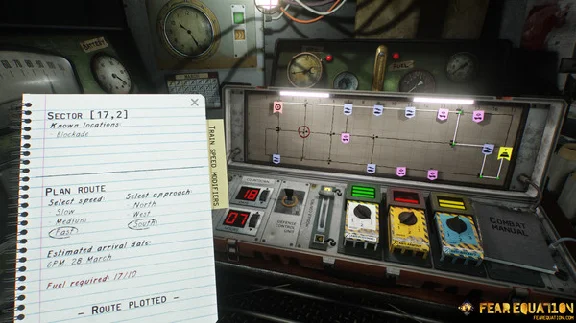 SECTOR [17,2]
Known locations:
blockade
PLAN ROUTE
Select speed:
Slow
Medium
Fast
Select approach:
North
West
South
Estimated arrival date:
6PM 28 March
Fuel required: 17/10
- ROUTE PLOTTED -
TRAIN SPEED MODIFIERS
18
07
COMBAT
MANUAL
FEAR EQUATION
FEAREQUATION.COM